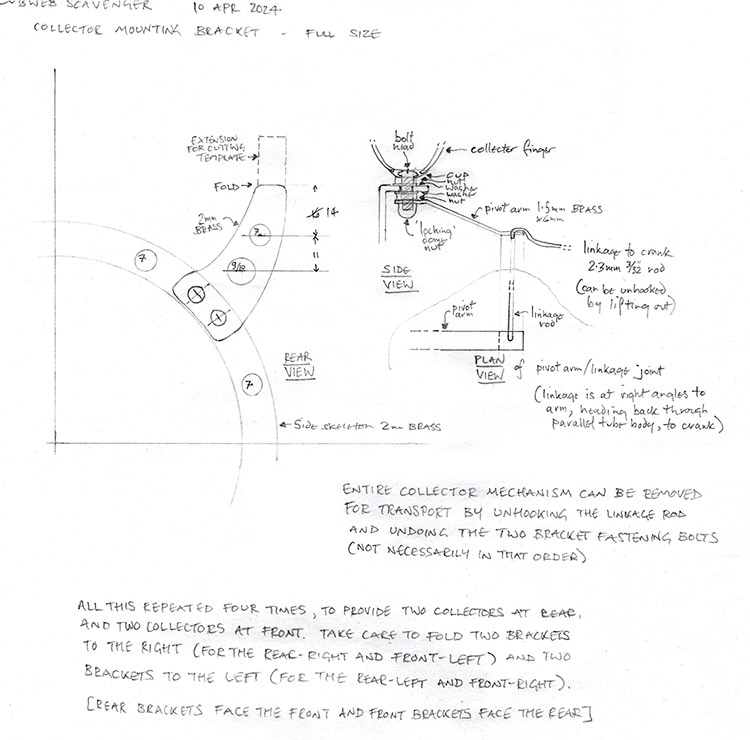 SCAVENGER 10 APR 2024
COLLECTOR MOUNTING BRACKET - FULL SIZE
EXTENSION
FOR CUTTING
TEMPLATE
FOLD
2mm
BRASS
14
11
7
7
9/10
7
REAR
VIEW
SIDE SKELETON 2mm BRASS
bolt
head
collector finger
cup
nut
washer
washer
nut
pivot arm 1.5mm BRASS
x6mm
'locking'
dome
nut
SIDE
VIEW
linkage to crank
2.3mm 3/32" rod
(can be unhooked
by lifting out)
pivot
arm
linkage
rod
PLAN
VIEW
of pivot arm/linkage joint
(linkage is at right angles to
arm, heading back through
parallel tube body, to crank)
ENTIRE COLLECTOR MECHANISM CAN BE REMOVED
FOR TRANSPORT BY UNHOOKING THE LINKAGE ROD
AND UNDOING THE TWO BRACKET FASTENING BOLTS
(NOT NECESSARILY IN THAT ORDER)
ALL THIS REPEATED FOUR TIMES, TO PROVIDE TWO COLLECTORS AT REAR,
AND TWO COLLECTORS AT FRONT. TAKE CARE TO FOLD TWO BRACKETS
TO THE RIGHT (FOR THE REAR-RIGHT AND FRONT-LEFT) AND TWO
BRACKETS TO THE LEFT (FOR THE REAR-LEFT AND FRONT-RIGHT).
[REAR BRACKETS FACE THE FRONT AND FRONT BRACKETS FACE THE REAR]